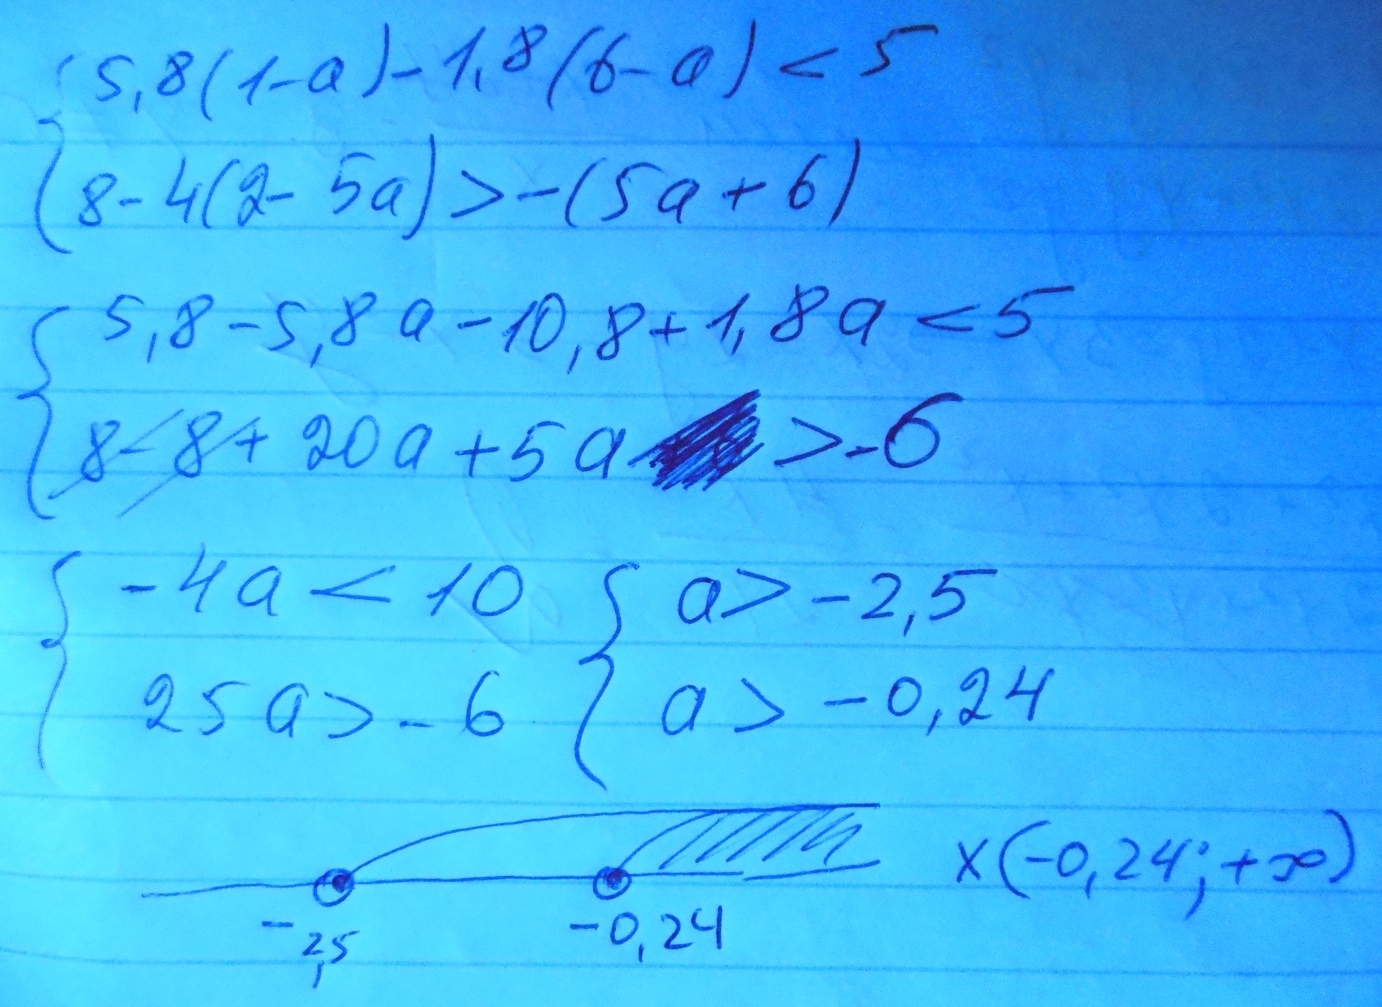 5,8(1-a)-1,8(6-a)<5
8-4(2-5a)>-(5a+6)
5,8-5,8a-10,8+1,8a<5
8-8+20a+5a>-6
-4a<10 a>-2,5
25a>-6 a>-0,24
x(-0,24;+∞)
-2,5 -0,24